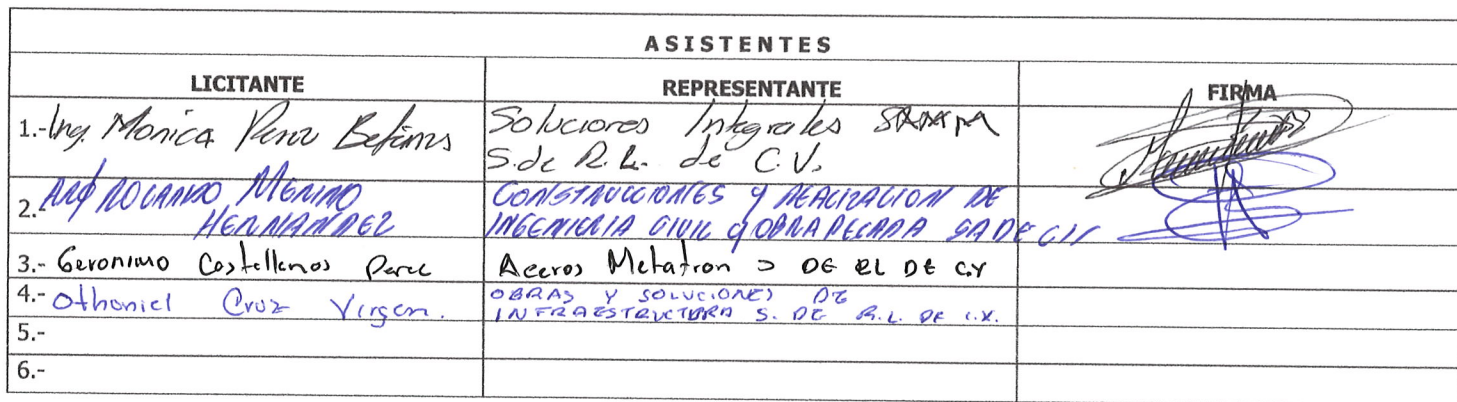 ASISTENTES
LICITANTE REPRESENTANTE FIRMA
1.- Ing. Monica Perez Soluciones Integrales
S. de R.L. de C.V.
2.- ROLANDO MERINO CONSTRUCCIONES Y REALIZACION DE
HERNANDEZ INGENIERIA CIVIL y OBRA PESADA SA DE CV
3.- Geronimo Castellanos Perez Aceros Metatron S DE RL DE C.V
4.- Othoniel Cruz Virgen. OBRAS Y SOLUCIONES DE
INFRAESTRUCTURA S. DE R.L. DE C.V.
5.-
6.-